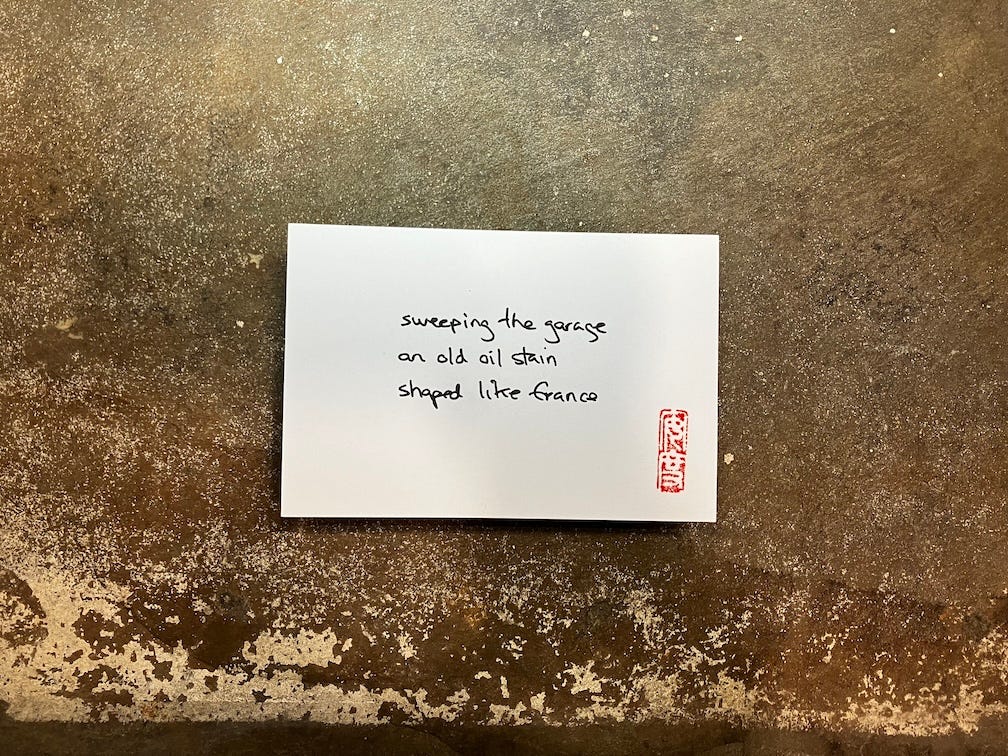 sweeping the garage
an old oil stain
shaped like france